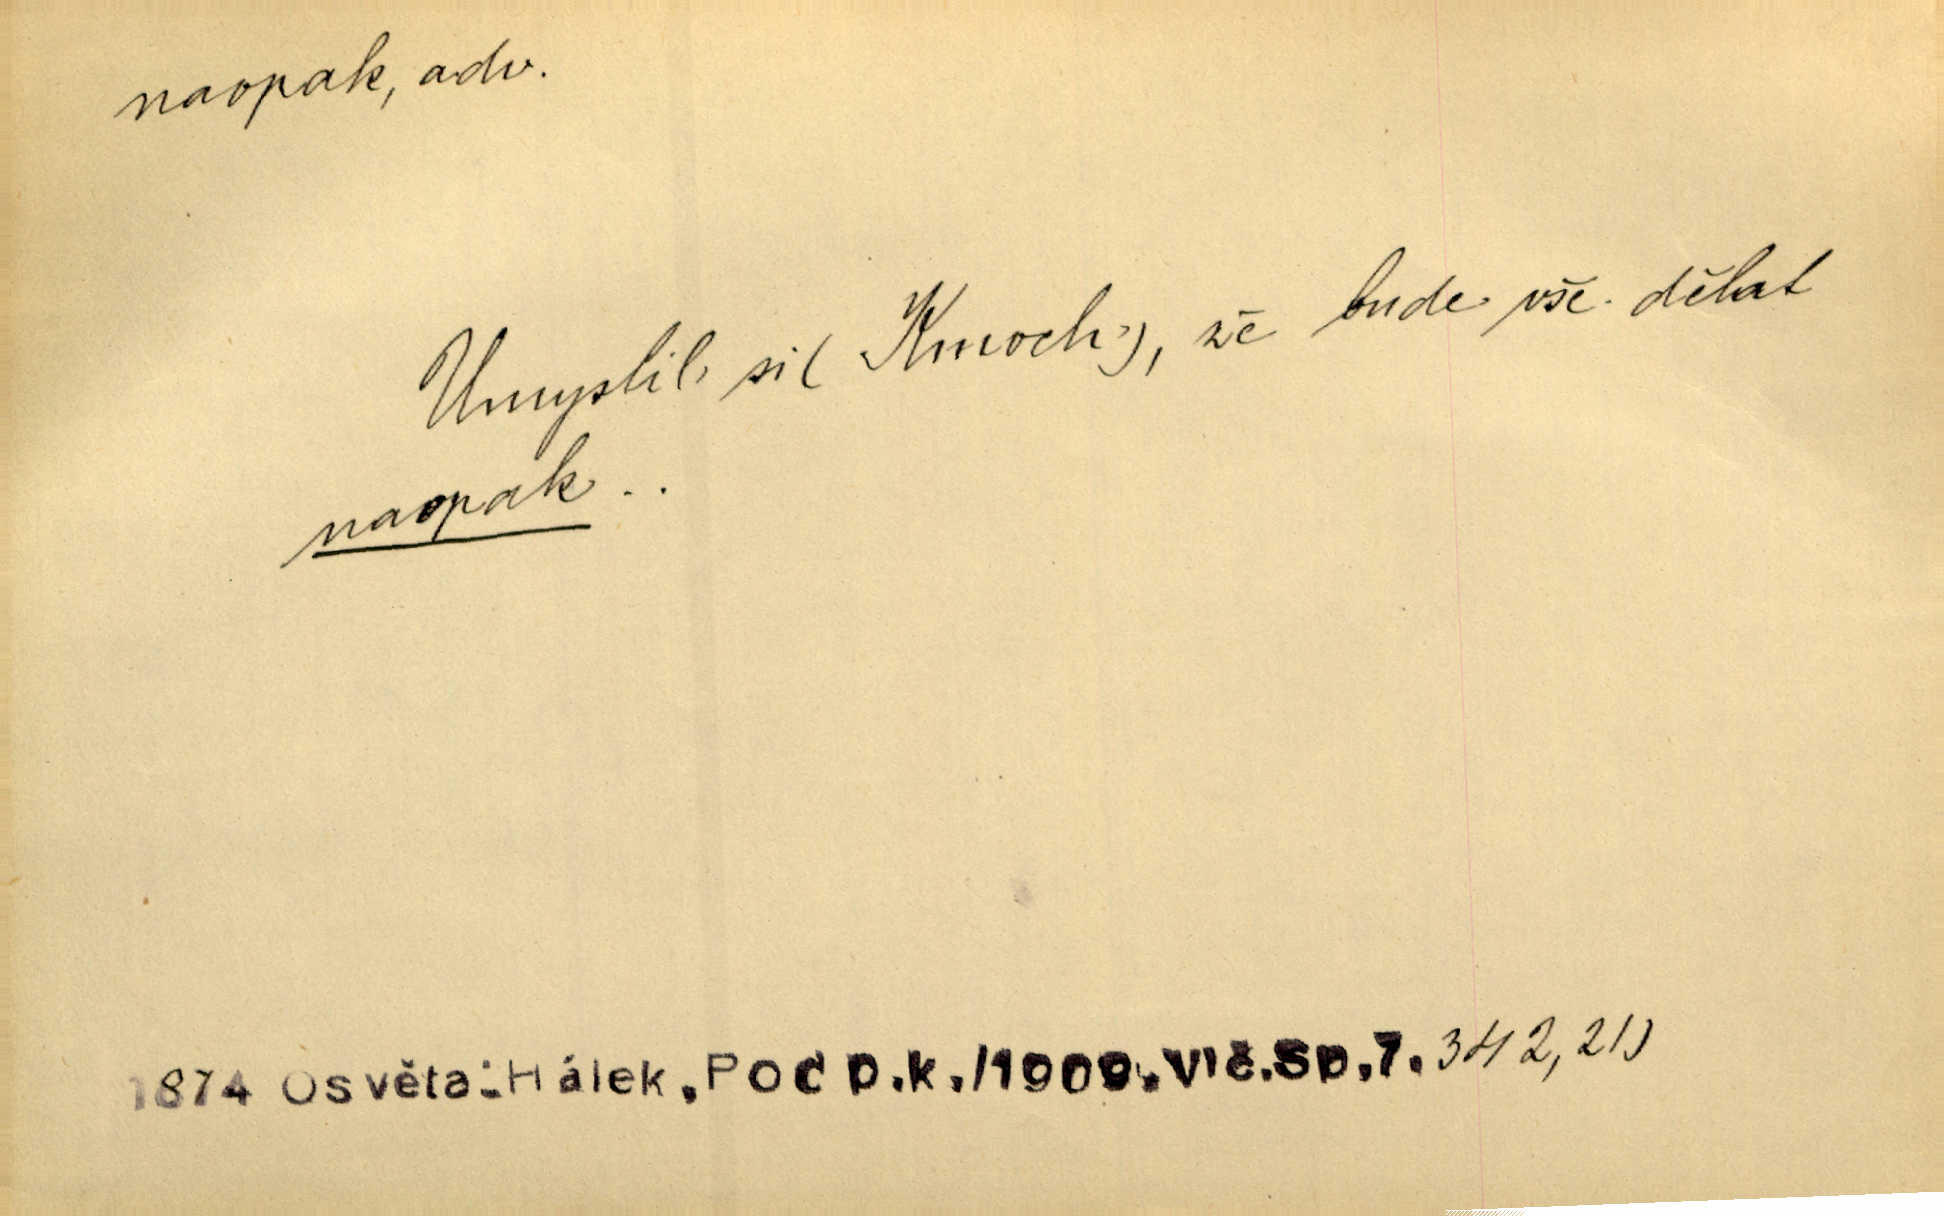 naopak, adv.
Umyslil si (Kmoch), že bude vše dělat
naopak ..
1874 Osvěta:Hálek,Pod p.k./1909.Vlč.Sp.7. 342, 21)